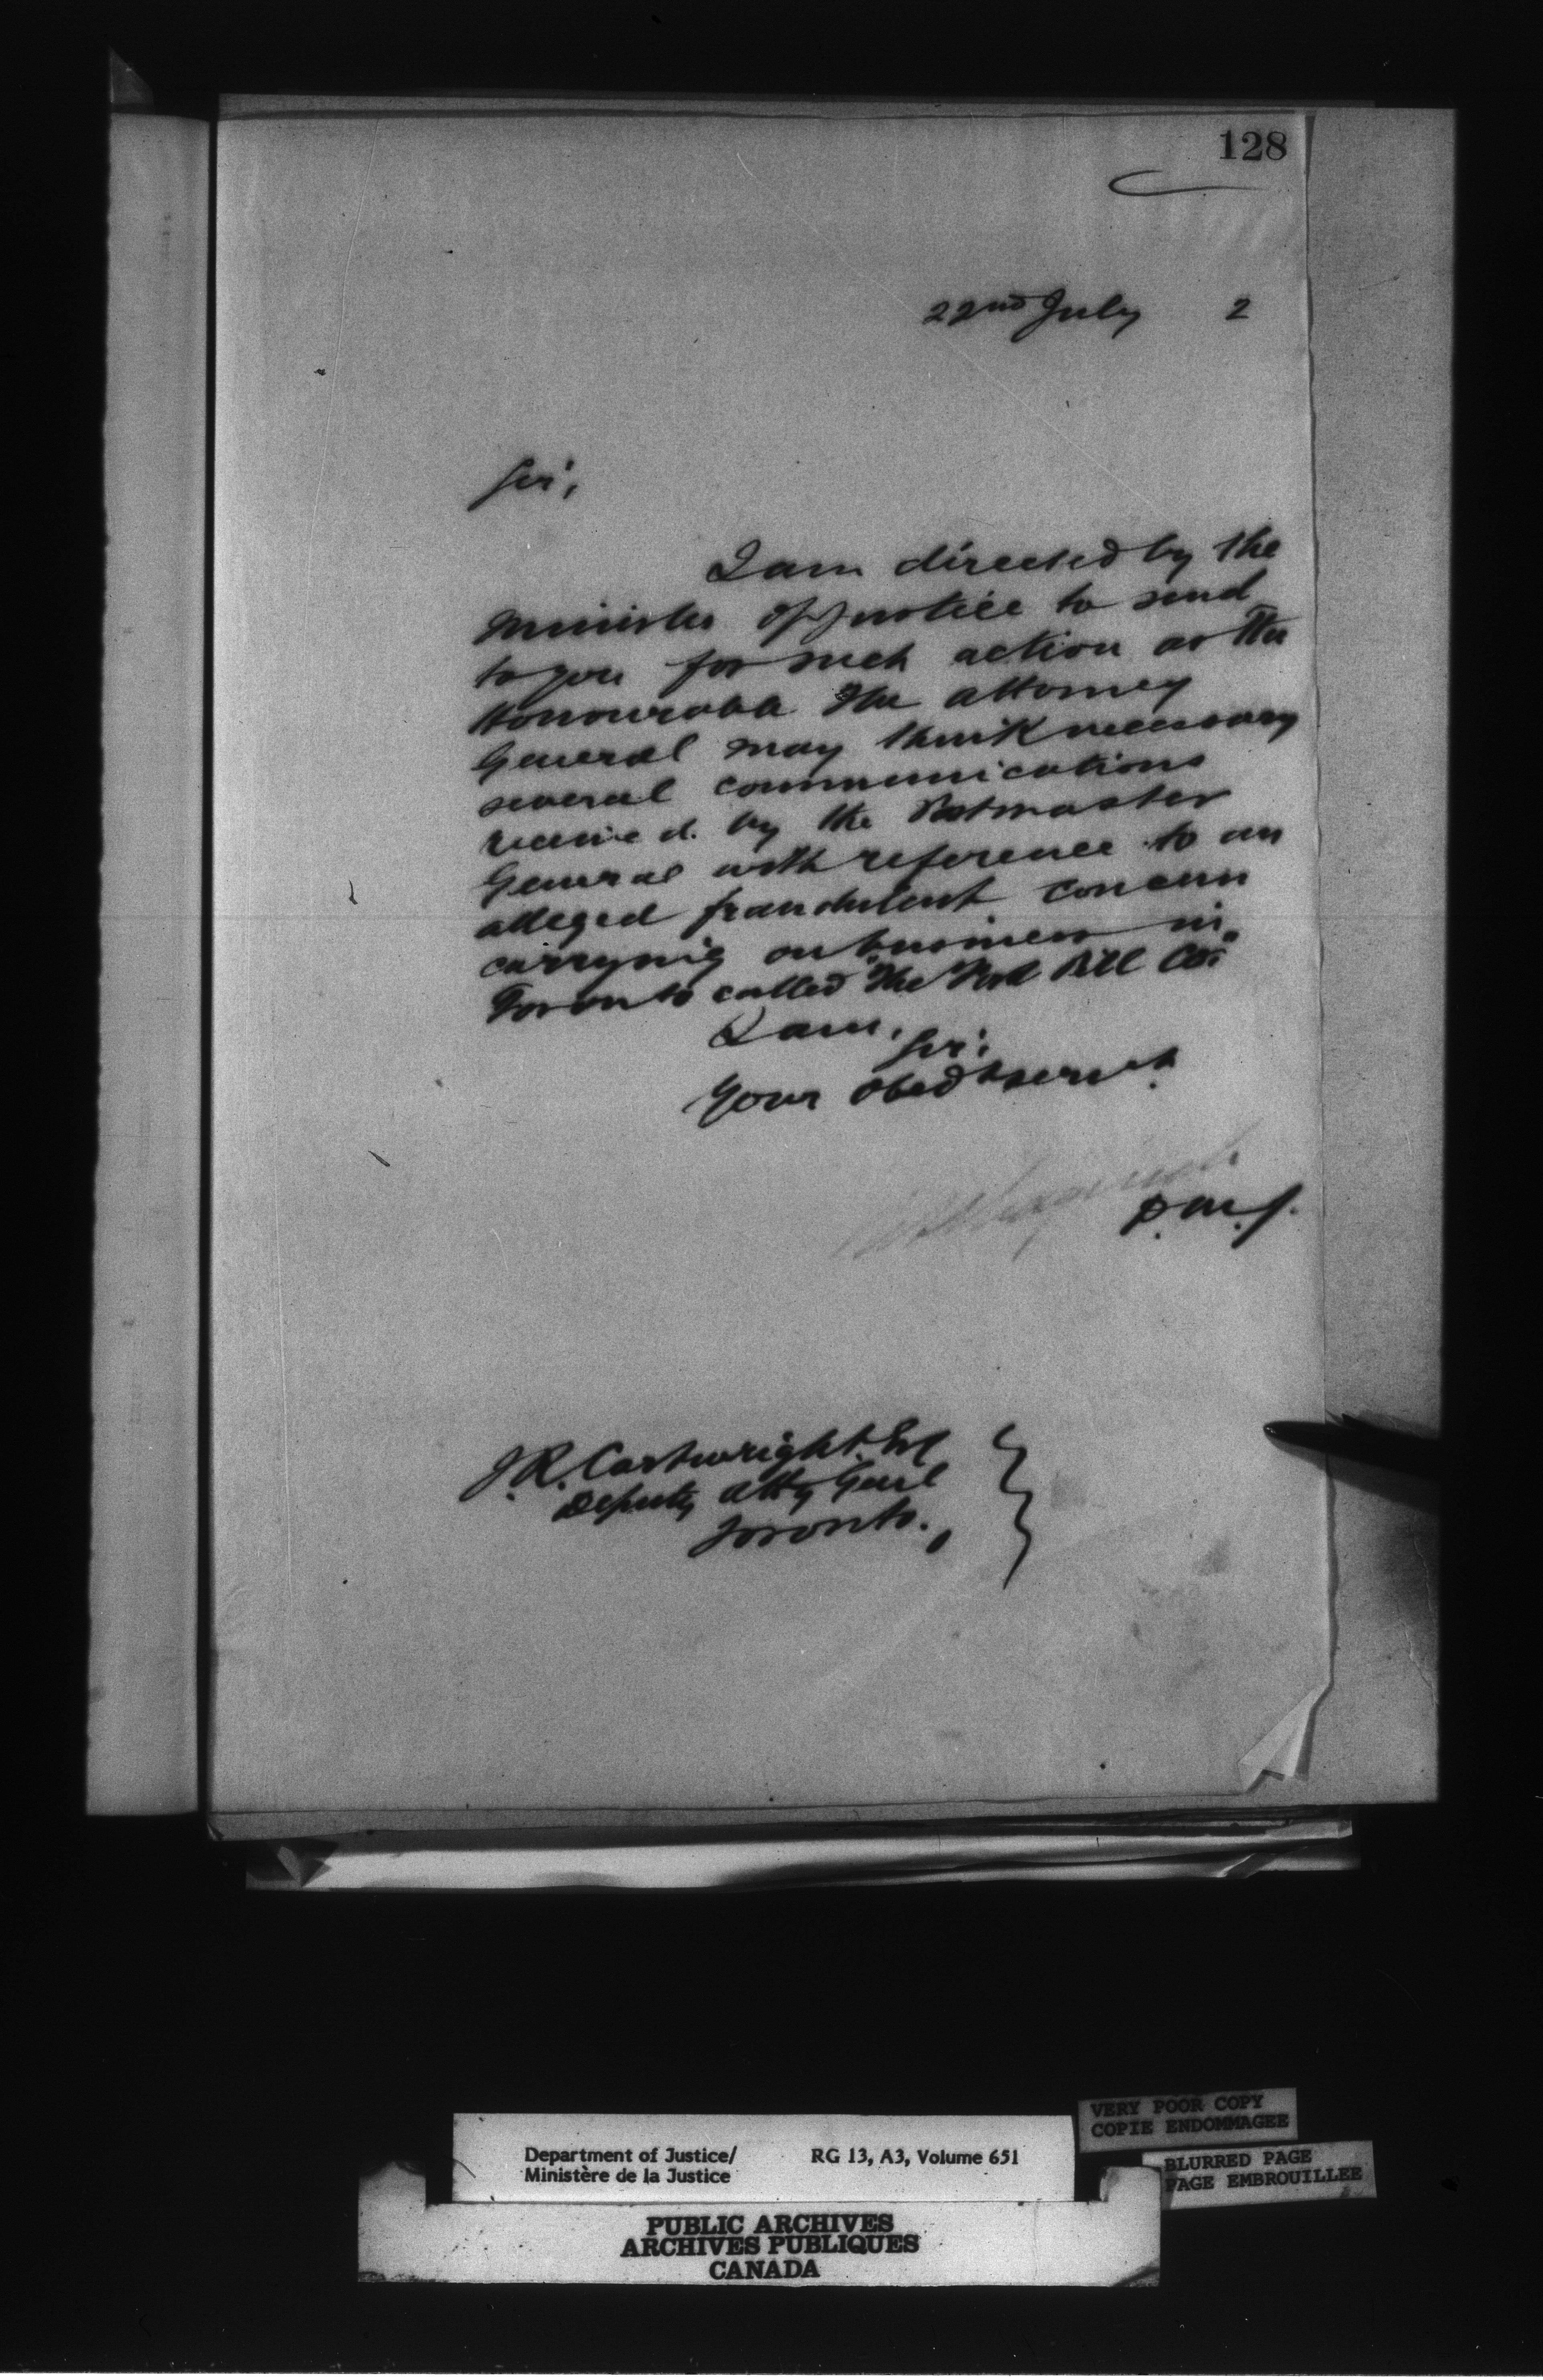 128
22nd July 2
Sir,
I am directed by the
Minister of Justice to send
to you for such action as the
Honourable the Attorney
General may think necessary
several communications
received by the Postmaster
General with reference to an
alleged fraudulent concern
carrying on business in
Toronto called "The Pill Co."
I am, Sir,
Your obedt servt
D.M.J.
J.R. Cartwright, Esq
Deputy Atty Genl
Toronto.
VERY POOR COPY
COPIE ENDOMMAGEE
Department of Justice/ RG 13, A3, Volume 651
Ministère de la Justice
BLURRED PAGE
PAGE EMBROUILLEE
PUBLIC ARCHIVES
ARCHIVES PUBLIQUES
CANADA